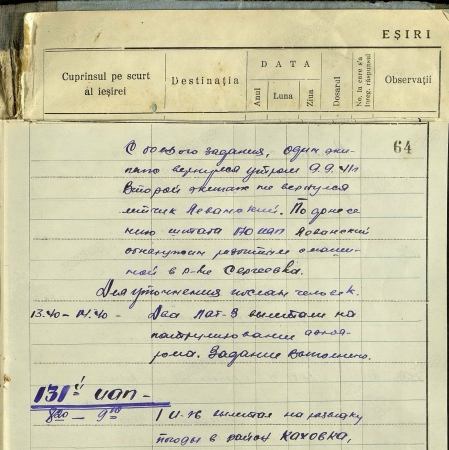 EȘIRI
Cuprinsul pe scurt al ieșirei
Destinația
DATA
Anul
Luna
Ziua
Dosarul
No. la care s'a înreg. răspunsul
Observații
64
С боевого задания, один эки-
паж вернулся утром 9.9.41г
Второй экипаж не вернулся
летчик Левановский. По донесе
нию штата иап Левановский
обнаружен разбитым с маши-
ной в р-не Сергеевка.
Для уточнения послан человек.
13.40 – 14.40 – Два ЛаГ-3 вылетали на
патрулирование аэрод-
рома. Задание выполнено.
131й иап –
8 – 9 1 И-16 вылетал на разведку
погоды в район Каховка,